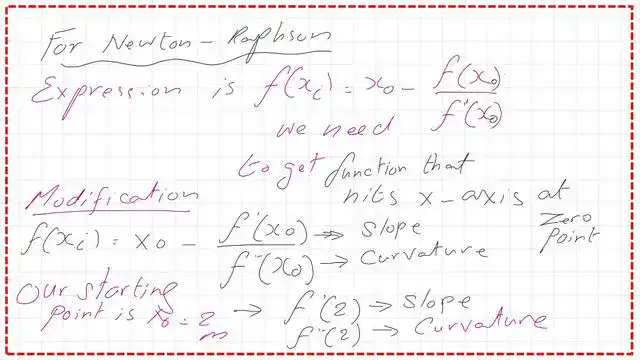 For Newton-Raphson
Expression is f(xᵢ) = x₀ - f(x₀) / f'(x₀)
we need
to get function that
hits x-axis at
Zero
Point
Modification
f(xᵢ) = x₀ - f'(x₀) → Slope
f''(x₀) → Curvature
Our starting
Point is x₀ = 2 m → f'(2) → Slope
f''(2) → Curvature